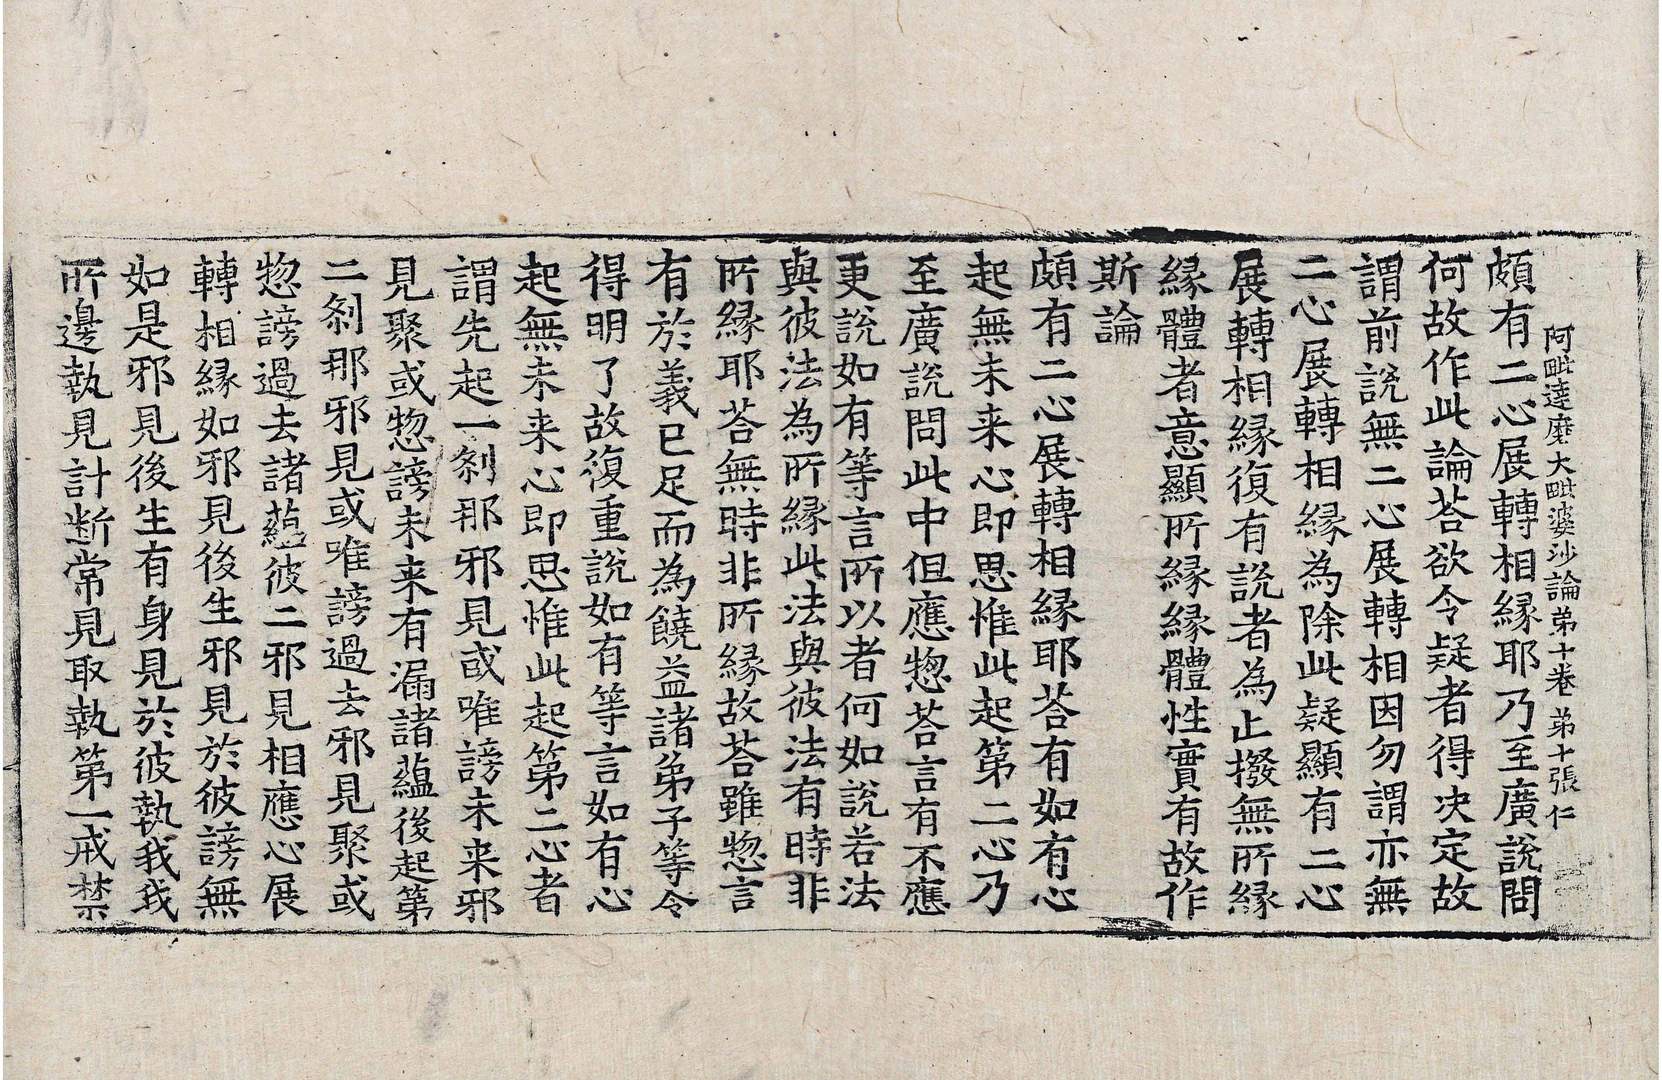 阿毗達磨大毗婆沙論苐十卷 苐十張 仁
頗有二心展轉相縁耶乃至廣說問
何故作此論荅欲令疑者得决定故
謂前說無二心展轉相因勿謂亦無
二心展轉相縁為除此疑顯有二心
展轉相縁復有說者為止撥無所縁
縁體者意顯所縁縁體性實有故作
斯論
頗有二心展轉相縁耶荅有如有心
起無未来心即思惟此起第二心乃
至廣說問此中但應惣荅言有不應
更說如有等言所以者何如說若法
與彼法為所縁此法與彼法有時非
所縁耶荅無時非所縁故荅雖惣言
有於義已足而為饒益諸弟子等令
得明了故復重說如有等言如有心
起無未来心即思惟此起第二心者
謂先起一剎那邪見或唯謗未来邪
見聚或惣謗未来有漏諸蘊後起第
二剎那邪見或唯謗過去邪見聚或
惣謗過去諸蘊彼二邪見相應心展
轉相縁如邪見後生邪見於彼謗無
如是邪見後生有身見於彼執我我
所邊執見計断常見取執第一戒禁